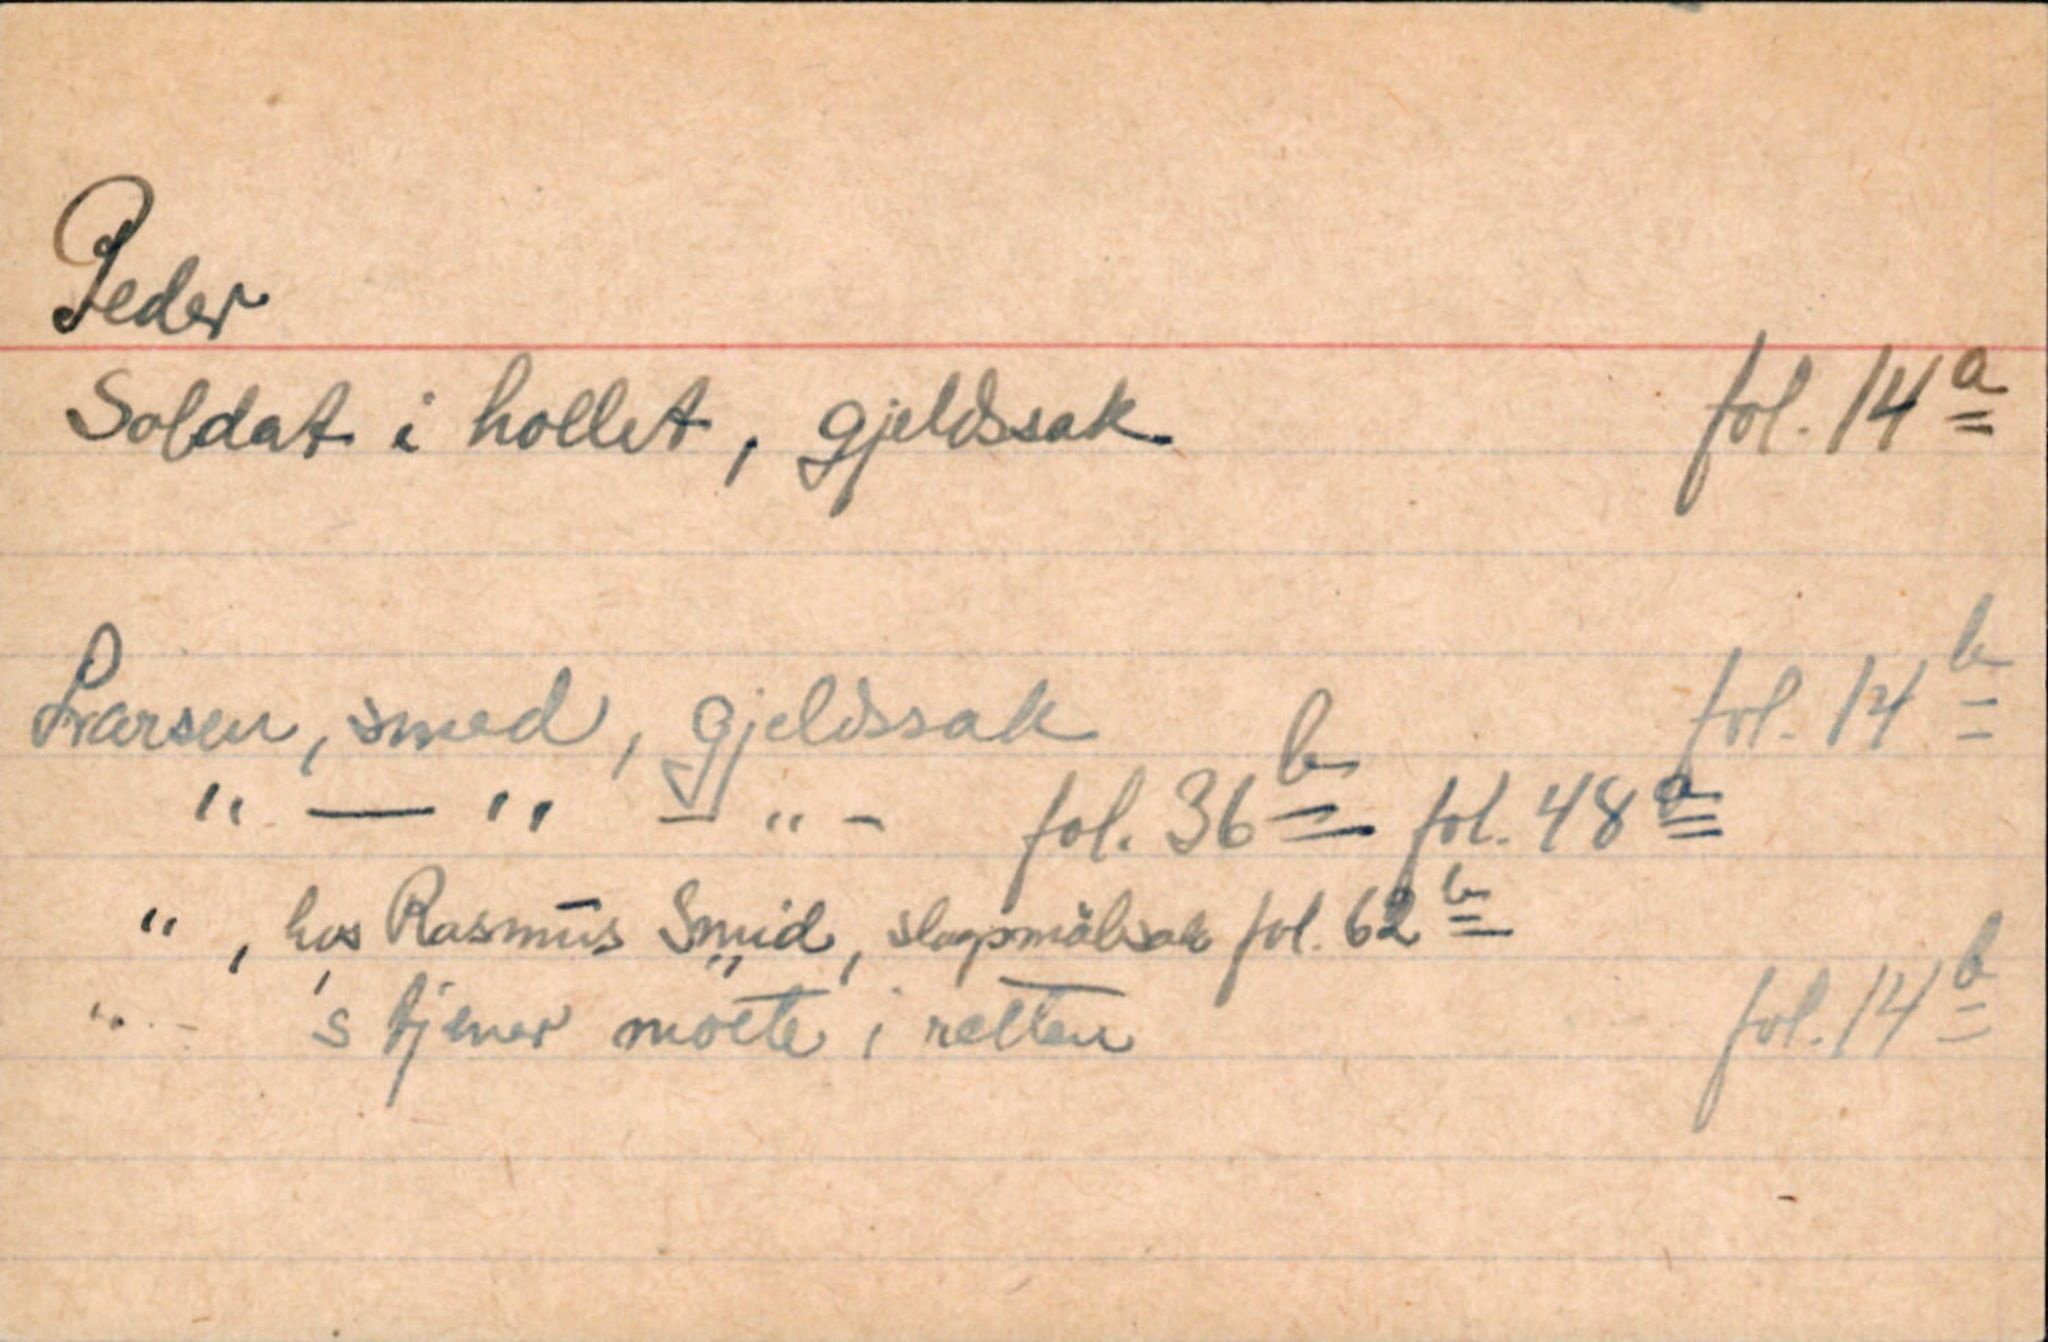 Peder
Soldat i hollet, gjeldssak. fol. 14 a
Larsen, smed, gjeldssak fol. 14 b
" — " — " — fol. 36 b fol. 48 a
", hos Rasmus Smid, slagsmålsak fol. 62 b
" - 's tjener møtte i retten fol. 14 b